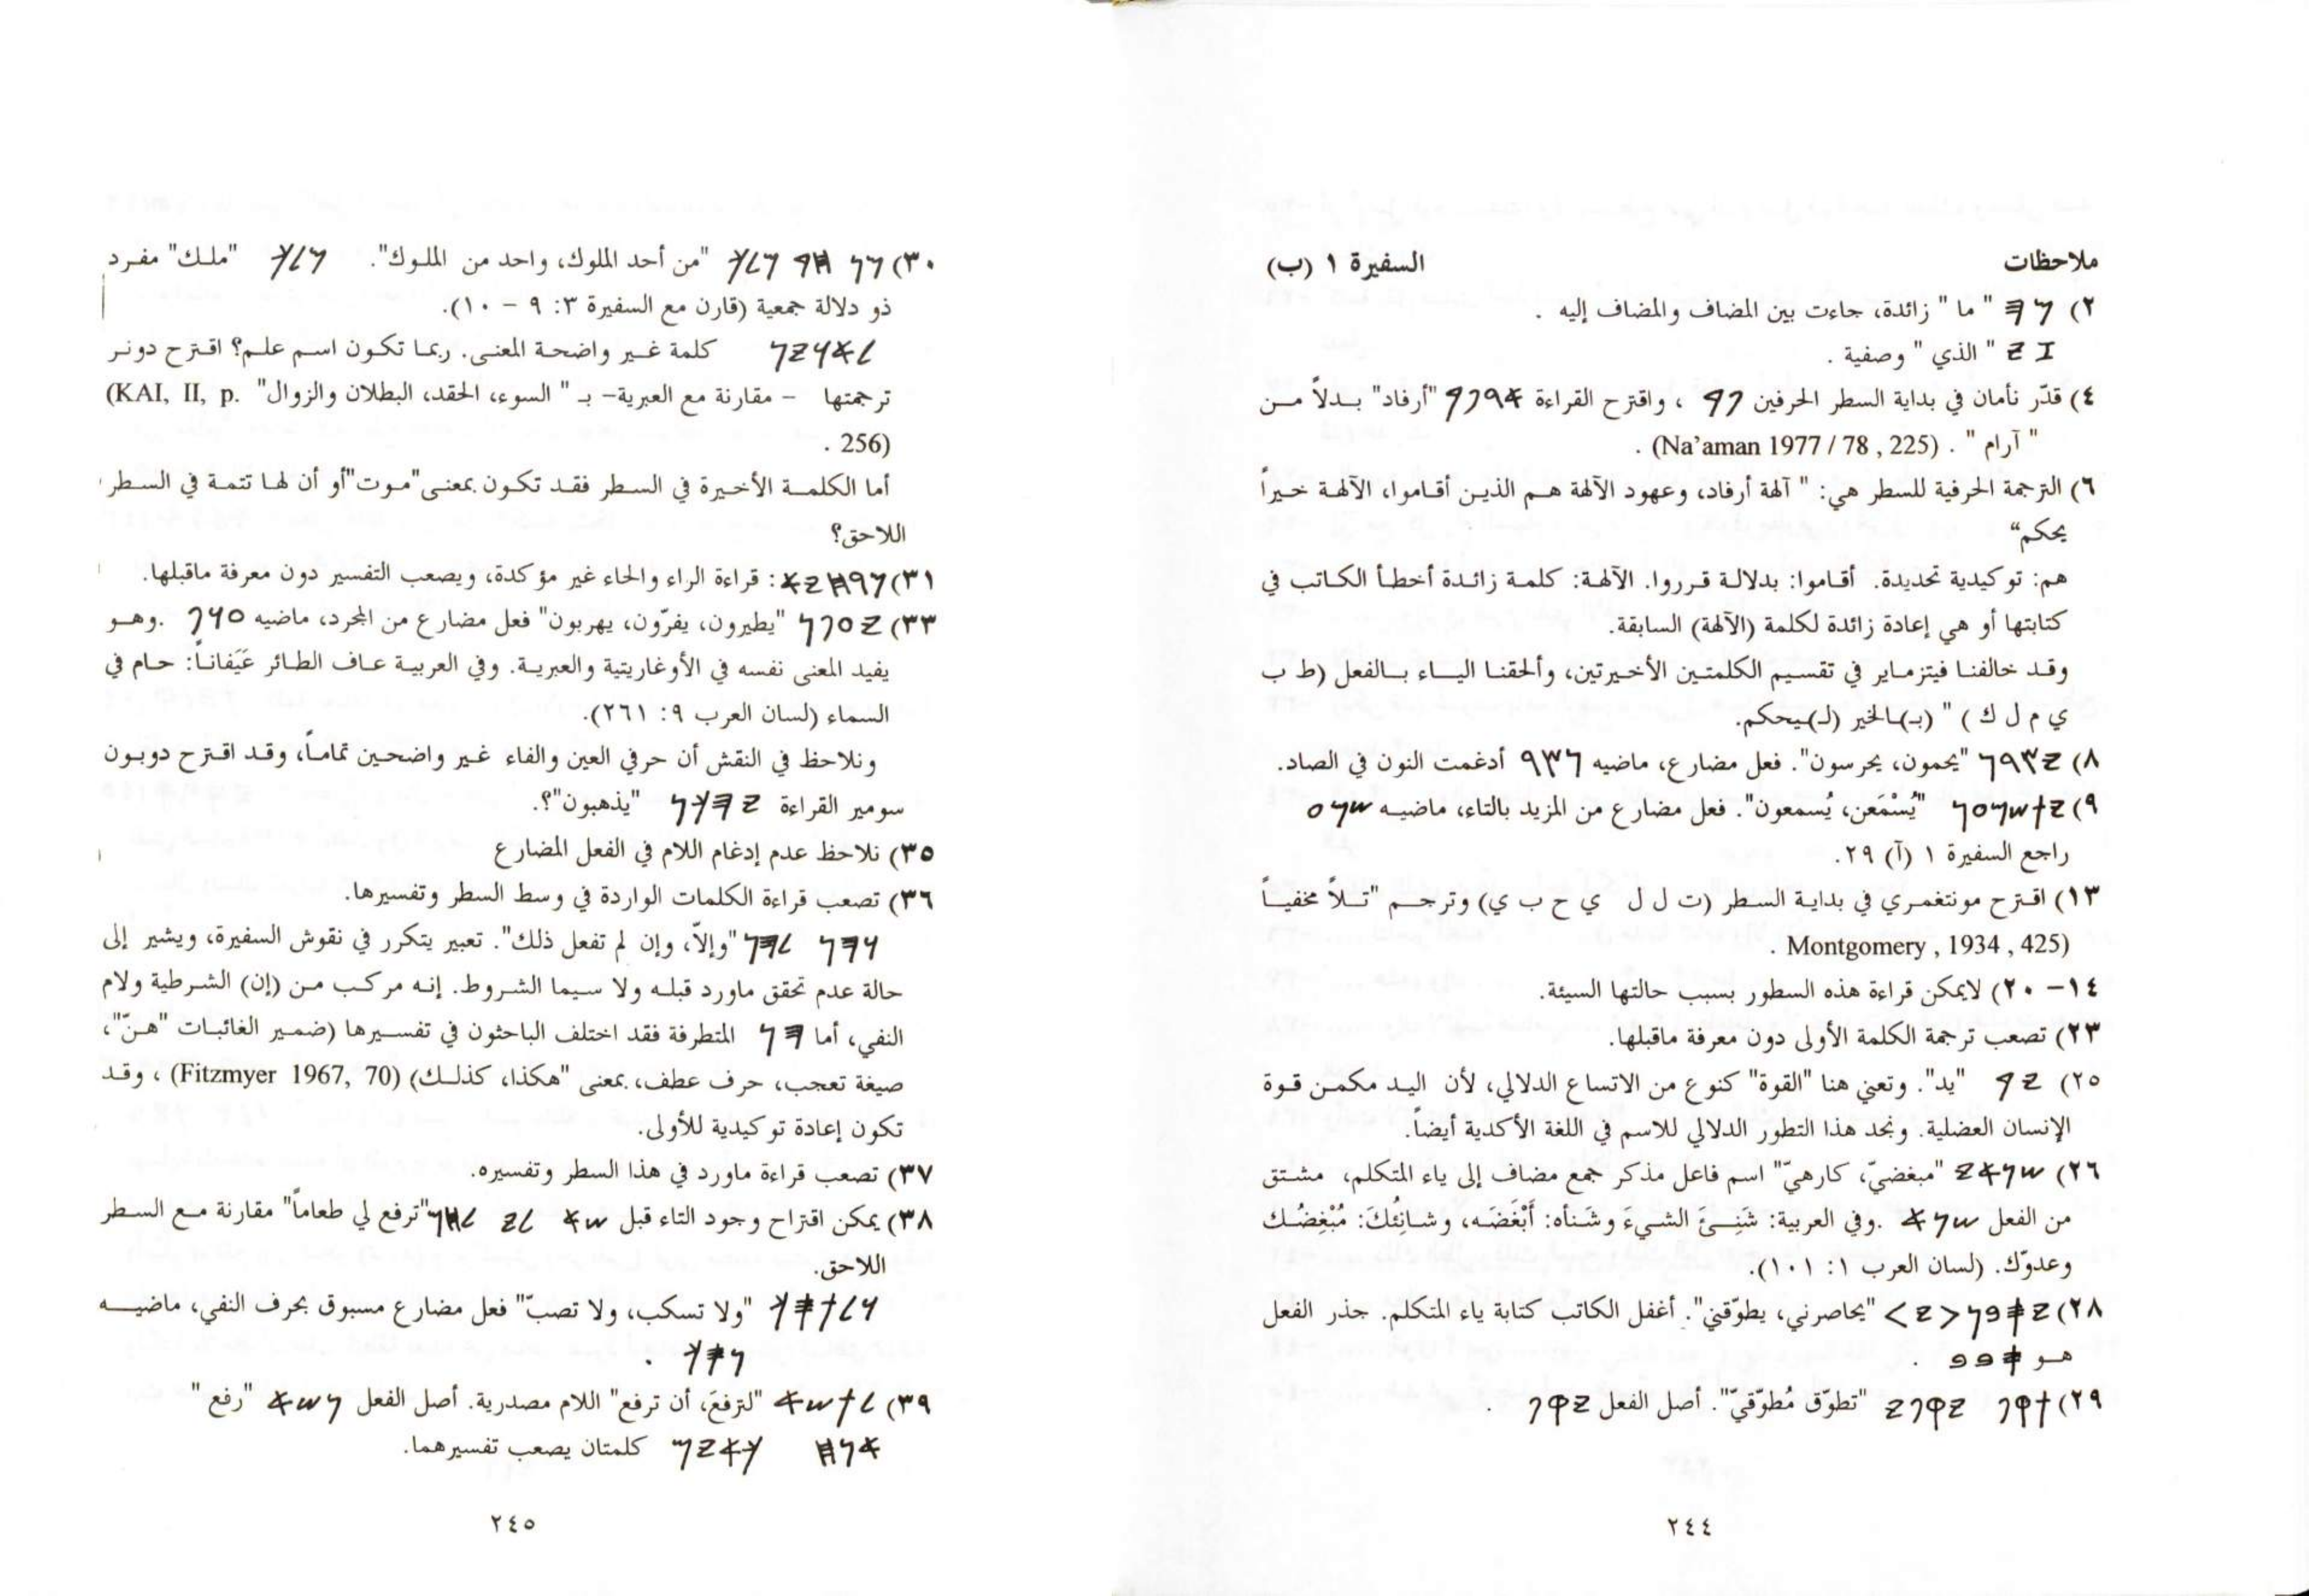 ملاحظات السفيرة ١ (ب)
٢) 𐤌𐤄 " ما " زائدة، جاءت بين المضاف والمضاف إليه .
𐤆𐤉 " الذي " وصفية .
٤) قدّر نأمان في بداية السطر الحرفين 𐤐𐤃 ، واقترح القراءة 𐤀𐤓𐤐𐤃 "أرفاد" بدلاً من
" آرام " . (Na’aman 1977 / 78 , 225) .
٦) الترجمة الحرفية للسطر هي: " آلهة أرفاد، وعهود الآلهة هم الذين أقاموا، الآلهة خيراً
يحكم“
هم: توكيدية تحديدة. أقاموا: بدلالة قرروا. الآلهة: كلمة زائدة أخطأ الكاتب في
كتابتها أو هي إعادة زائدة لكلمة (الآلهة) السابقة.
وقد خالفنا فيتزماير في تقسيم الكلمتين الأخيرتين، وألحقنا الياء بالفعل (ط ب
ي م ل ك ) " (بـ)ـالخير (لـ)ـيحكم.
٨) 𐤉𐤑𐤓𐤍 "يحمون، يحرسون". فعل مضارع، ماضيه 𐤍𐤑𐤓 أدغمت النون في الصاد.
٩) 𐤉𐤕𐤔𐤌𐤏𐤍 "يُسْمَعن، يُسمعون". فعل مضارع من المزيد بالتاء، ماضيه 𐤔𐤌𐤏
راجع السفيرة ١ (آ) ٢٩.
١٣) اقترح مونتغمري في بداية السطر (ت ل ل ي ح ب ي) وترجم "تلاً مخفياً
Montgomery , 1934 , 425) .
١٤– ٢٠) لايمكن قراءة هذه السطور بسبب حالتها السيئة.
٢٣) تصعب ترجمة الكلمة الأولى دون معرفة ماقبلها.
٢٥) 𐤉𐤃 "يد". وتعني هنا "القوة" كنوع من الاتساع الدلالي، لأن اليد مكمن قوة
الإنسان العضلية. ونجد هذا التطور الدلالي للاسم في اللغة الأكدية أيضاً.
٢٦) 𐤔𐤍𐤀𐤉 "مبغضيّ، كارهيّ" اسم فاعل مذكر جمع مضاف إلى ياء المتكلم، مشتق
من الفعل 𐤔𐤍𐤀 .وفي العربية: شَنِئَ الشيءَ وشَنأه: أبْغَضَه، وشانِئُكَ: مُبْغِضُك
وعدوّك. (لسان العرب ١: ١٠١).
٢٨) 𐤉𐤎𐤁𐤍<𐤉> "يحاصرني، يطوّقني". أغفل الكاتب كتابة ياء المتكلم. جذر الفعل
هو 𐤎𐤁𐤁 .
٢٩) 𐤕𐤒𐤐 𐤉𐤒𐤐𐤉 "تطوّق مُطوّقيّ". أصل الفعل 𐤉𐤒𐤐 .
٢٤٤
٣٠) 𐤌𐤍 𐤇𐤃 𐤌𐤋𐤊 "من أحد الملوك، واحد من الملوك". 𐤌𐤋𐤊 "ملك" مفرد
ذو دلالة جمعية (قارن مع السفيرة ٣: ٩ – ١٠).
𐤋𐤀𐤅𐤉𐤍 كلمة غير واضحة المعنى. ربما تكون اسم علم؟ اقترح دونر
ترجمتها – مقارنة مع العبرية– بـ " السوء، الحقد، البطلان والزوال" (KAI, II, p.
256) .
أما الكلمة الأخيرة في السطر فقد تكون بمعنى"موت"أو أن لها تتمة في السطر
اللاحق؟
٣١) 𐤌𐤓𐤇𐤉𐤀: قراءة الراء والحاء غير مؤكدة، ويصعب التفسير دون معرفة ماقبلها.
٣٣) 𐤉𐤏𐤐𐤍 "يطيرون، يفرّون، يهربون" فعل مضارع من المجرد، ماضيه 𐤏𐤅𐤐 .وهو
يفيد المعنى نفسه في الأوغاريتية والعبرية. وفي العربية عاف الطائر عَيَفاناً: حام في
السماء (لسان العرب ٩: ٢٦١).
ونلاحظ في النقش أن حرفي العين والفاء غير واضحين تماماً، وقد اقترح دوبون
سومير القراءة 𐤉𐤄𐤊𐤍 "يذهبون"؟.
٣٥) نلاحظ عدم إدغام اللام في الفعل المضارع
٣٦) تصعب قراءة الكلمات الواردة في وسط السطر وتفسيرها.
𐤅𐤄𐤍 𐤋𐤄𐤍 "وإلاّ، وإن لم تفعل ذلك". تعبير يتكرر في نقوش السفيرة، ويشير إلى
حالة عدم تحقق ماورد قبله ولا سيما الشروط. إنه مركب من (إن) الشرطية ولام
النفي، أما 𐤄𐤍 المتطرفة فقد اختلف الباحثون في تفسيرها (ضمير الغائبات "هنّ"،
صيغة تعجب، حرف عطف، بمعنى "هكذا، كذلك) (Fitzmyer 1967, 70) ، وقد
تكون إعادة توكيدية للأولى.
٣٧) تصعب قراءة ماورد في هذا السطر وتفسيره.
٣٨) يمكن اقتراح وجود التاء قبل 𐤔𐤀 𐤋𐤉 𐤋𐤇𐤌 "ترفع لي طعاماً" مقارنة مع السطر
اللاحق.
𐤅𐤋𐤕𐤎𐤊 "ولا تسكب، ولا تصبّ" فعل مضارع مسبوق بحرف النفي، ماضيه
𐤍𐤎𐤊 .
٣٩) 𐤋𐤕𐤔𐤀 "لترفعَ، أن ترفع" اللام مصدرية. أصل الفعل 𐤍𐤔𐤀 "رفع "
𐤀𐤍𐤇 𐤊𐤀𐤉𐤌 كلمتان يصعب تفسيرهما.
٢٤٥